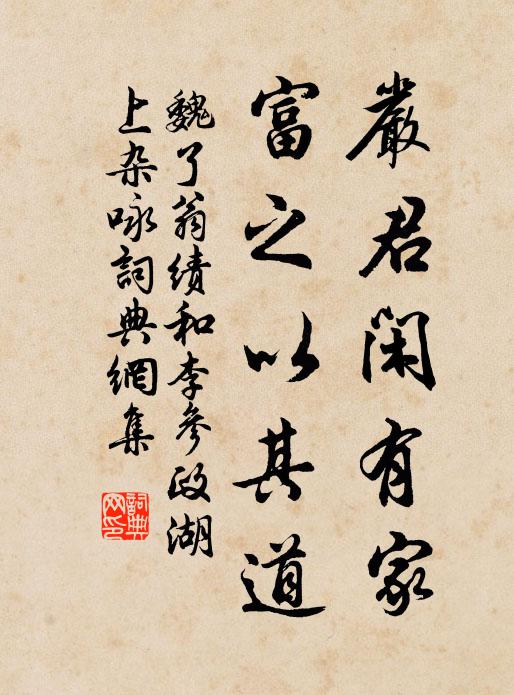 嚴君閑有家
富之以其道
魏了翁績和李參政湖
上杂咏詞典網集
詞典
网印